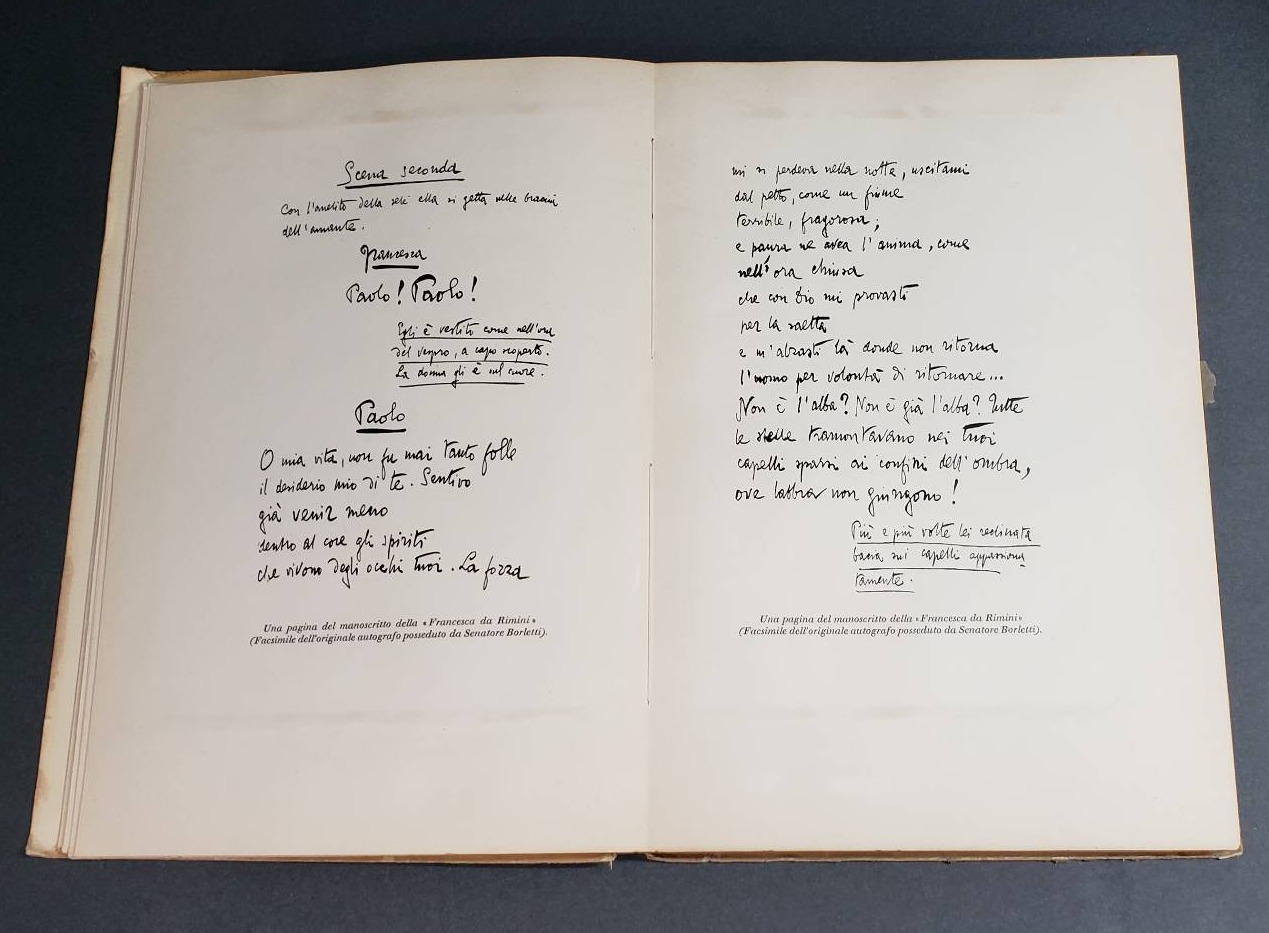 Scena seconda
Con l'anelito della sete ella si getta nelle braccia
dell'amante.
Francesca
Paolo! Paolo!
Egli è vestito come nell'ora
del vespro, a capo scoperto.
La donna gli è sul cuore.
Paolo
O mia vita, non fu mai tanto folle
il desiderio mio di te. Sentivo
già venir meno
dentro al core gli spiriti
che vivono degli occhi tuoi. La forza
Una pagina del manoscritto della «Francesca da Rimini»
(Facsimile dell'originale autografo posseduto da Senatore Borletti).
mi si perdeva nella notte, uscitami
dal petto, come un fiume
terribile, fragorosa;
e paura ne avea l'anima, come
nell'ora chiusa
che con Dio mi provasti
per la saetta
e m'alzasti là donde non ritorna
l'uomo per volontà di ritornare...
Non è l'alba? Non è già l'alba? Tutte
le stelle tramontavano nei tuoi
capelli sparsi ai confini dell'ombra,
ove labbra non giungono!
Più e più volte lei reclinata
bacia sui capelli appassiona
tamente.
Una pagina del manoscritto della «Francesca da Rimini»
(Facsimile dell'originale autografo posseduto da Senatore Borletti).